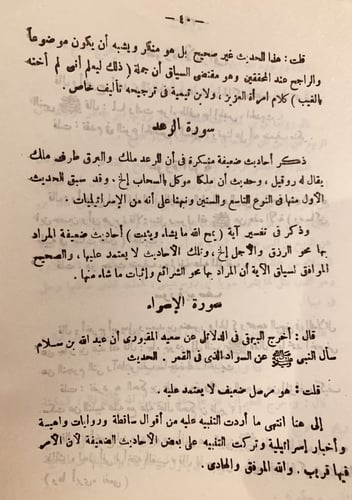 — ٤٠ —
قلت : هذا الحديث غير صحيح بل هو منكر ويشبه أن يكون موضوعاً
والراجح عند المحققين وهو مقتضى السياق أن جملة ( ذلك ليعلم أنى لم أخنه
بالغيب ) كلام امرأة العزيز ، ولابن تيمية فى ترجيحه تأليف خاص .
سورة الرعد
ذكر أحاديث ضعيفة منكرة فى أن للرعد ملك والبرق طرفى ملك
يقال له روقيل ، وحديث أن ملكا موكل بالسحاب إلخ . وقد سبق الحديث
الأول منها فى النوع التاسع والستين ونبهنا على أنه من الإسرائيليات .
وذكر فى تفسير آية ( يمح الله ما يشاء ويثبت ) أحاديث ضعيفة المراد
بها محو الرزق والأجل إلخ ، وتلك الأحاديث لا يعتمد عليها ، والصحيح
الموافق لسياق الآية أن المراد بها محو الشرائع وإثبات ما شاء منها .
سورة الإسراء
قال : أخرج البيهقى فى الدلائل عن سعيد المقبوردى أن عبد الله بن سلام
سأل النبى ﷺ عن السواد الذى فى القمر . الحديث
قلت : هو مرسل ضعيف لا يعتمد عليه .
إلى هنا انتهى ما أردت التنبيه عليه من أقوال ساقطة وروايات واهية
وأخبار إسرائيلية وتركت التنبيه على بعض الأحاديث الضعيفة لأن الأمر
فيها قريب . والله الموفق والهادى .